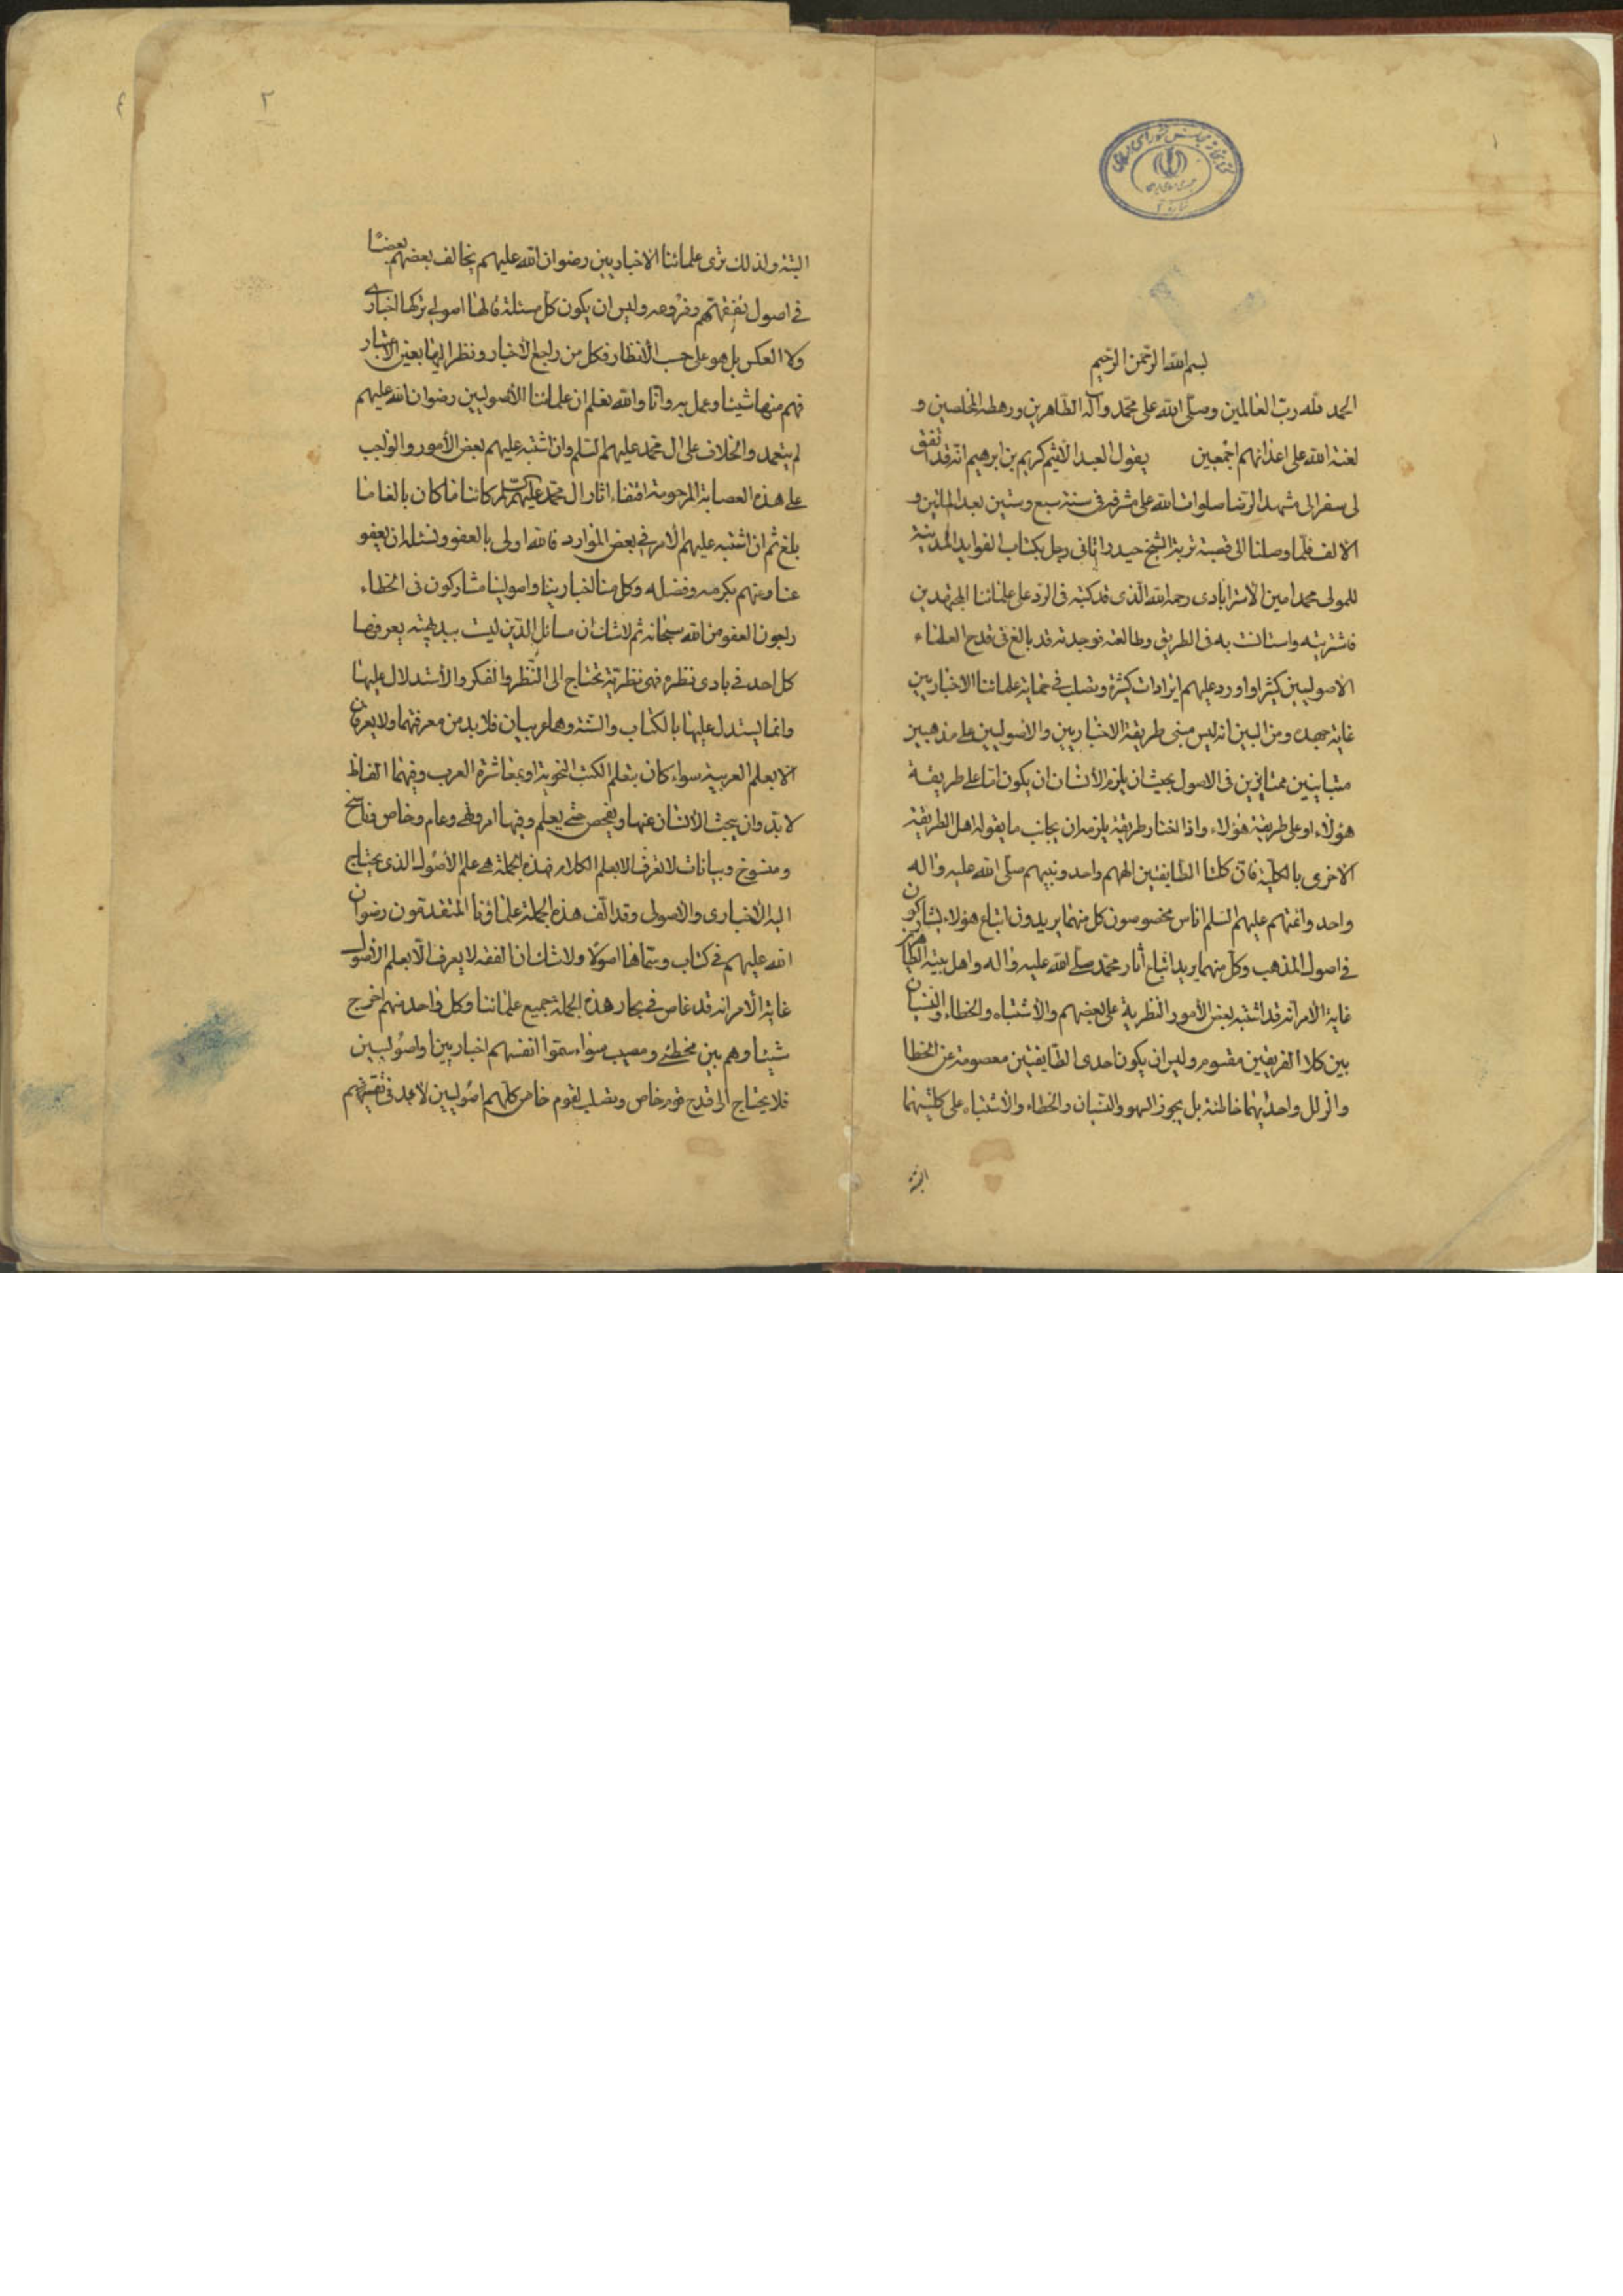 بسم الله الرحمن الرحیم
الحمد لله رب العالمین وصلی الله علی محمد وآله الطاهرین ورهطه المخلصین و
لعنة الله علی اعدائهم اجمعین یقول العبد الاثیم کریم بن ابرهیم انه قد اتفق
لی سفر الی مشهد الرضا صلوات الله علی مشرفه فی سنة سبع وستین بعد المأتین و
الالف فلما وصلنا الی قصبة تربة الشیخ حیدر اتانی رجل بکتاب الفواید المدنیة
للمولی محمد امین الاسترابادی رحمه الله الذی قد کتبه فی الرد علی علمائنا المجتهدین
فاشتریته واستانست به فی الطریق وطالعته فوجدته قد بالغ فی قدح العلماء
الاصولیین کثیرا واورد علیهم ایرادات کثیرة وتصلب فی حمایة علمائنا الاخباریین
غایة جهده ومن البین انه لیس مبنی طریقة الاخباریین والاصولیین علی مذهبین
متباینین ممتازین فی الاصول بحیث ان یلزم الانسان ان یکون اما علی طریقة
هؤلاء او علی طریقة هؤلاء واذا اختار طریقة یلزمه ان یجانب ما یقوله اهل الطریقة
الاخری بالکلیة فان کلتا الطایفتین الههم واحد ونبیهم صلی الله علیه واله
واحد وائمتهم علیهم السلم اناس مخصوصون کل منهما یریدون اتباع هؤلاء یشارکون
فی اصول المذهب وکل منهما یرید اتباع آثار محمد صلی الله علیه واله واهل بیته الطاهرین
غایة الامر انه قد اشتبه بعض الأمور النظریة علی بعضهم والأشتباه والخطاء والنسیان
بین کلا الفریقین مقسوم ولیس ان یکون احدی الطایفتین معصومة عن الخطا
والزلل واحدیهما خاطئة بل یجوز السهو والنسیان والخطاء والأشتباه علی کلتیهما
البتة
البتة ولذلک تری علمائنا الاخباریین رضوان الله علیهم یخالف بعضهم بعضا
فی اصول تفقههم وفروعه ولیس ان یکون کل مسئلة قالها اصولی ترکها اخباری
ولا العکس بل هو علی حسب الأنظار فکل من راجع الأخبار ونظر الیها بعین الاعتبار
فهم منها شیئا وعمل به وانا والله نعلم ان علمائنا الأصولیین رضوان الله علیهم
لم یتعمدوا الخلاف علی ال محمد علیهم السلم وان اشتبه علیهم بعض الأمور والواجب
علی هذه العصابة المرحومة اقتفاء اثار ال محمد علیهم السلم کائنا ما کان بالغا ما
بلغ ثم ان اشتبه علیهم الأمر فی بعض الموارد فالله اولی بالعفو ونسئله ان یعفو
عنا وعنهم بکرمه وفضله وکل منا اخبارینا واصولینا مشارکون فی الخطاء
راجون العفو من الله سبحانه ثم لاشک ان مسائل الدین لیست ببدیهیة یعرفها
کل احد فی بادی نظره فهی نظریة تحتاج الی النظر والفکر والأستدلال علیها
وانما یستدل علیها بالکتاب والسنة وهما عربیان فلا بد من معرفتهما ولا یعرفان
الا بعلم العربیة سواء کان بتعلم الکتب النحویة او بمعاشرة العرب وفیهما الفاظ
لابد وان یبحث الأنسان عنها ویفحص حتی یعلم وفیها امر ونهی وعام وخاص وناسخ
ومنسوخ وبیانات لا تعرف الا بعلم الکلام فهذه الجملة هی علم الأصول الذی یحتاج
الیه الأخباری والاصولی وقد الف هذه الجملة علماؤنا المتقدمون رضوان
الله علیهم فی کتاب وسماها اصولا ولاشک ان الفقه لا یعرف الا بعلم الأصول
غایة الأمر انه قد غاص فی بحار هذه الجملة جمیع علمائنا وکل واحد منهم اخرج
شیئا وهم بین مخطئ ومصیب سواء سموا انفسهم اخباریین او اصولیین
فلا یحتاج الی قدح قوم خاص وتصلب لقوم خاص کلهم اصولیین لابد فی تفقههم